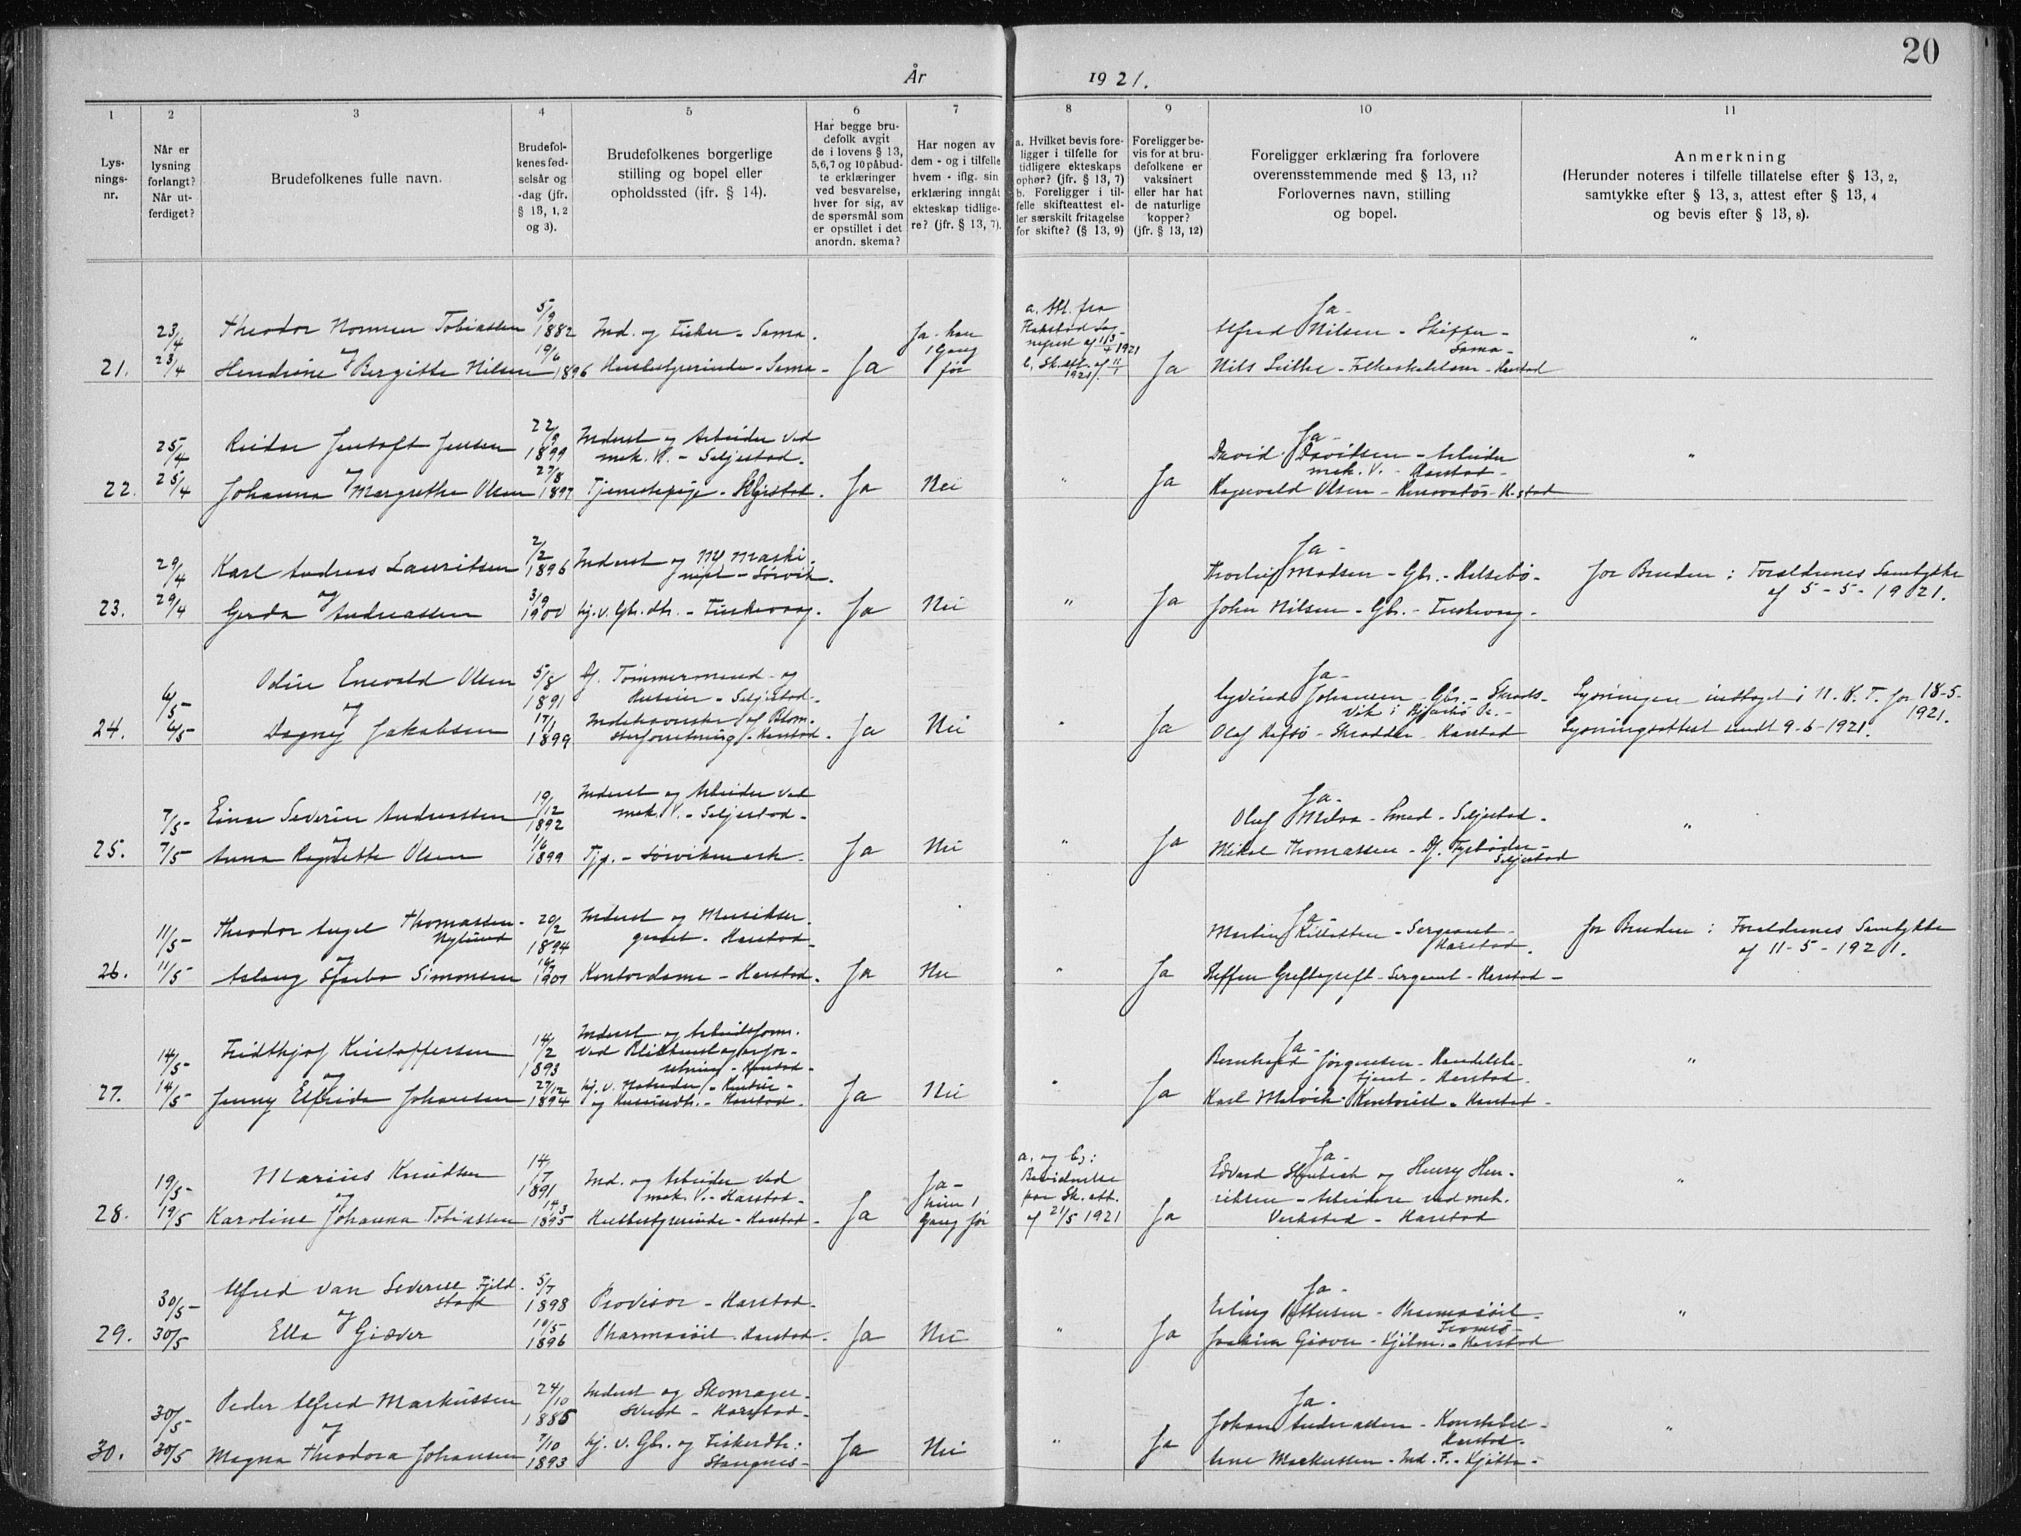 20
År 1921.
1 2 3 4 5 6 7 8 9 10 11
Lysnings-nr.
Når er lysning forlangt? Når utferdiget?
Brudefolkenes fulle navn.
Brudefolkenes fødselsår og -dag (jfr. § 13, 1, 2 og 3).
Brudefolkenes borgerlige stilling og bopel eller opholdssted (jfr. § 14).
Har begge brudefolk avgit de i lovens § 13, 5, 6, 7 og 10 påbudte erklæringer ved besvarelse, hver for sig, av de spørsmål som er opstillet i det anordn. skema?
Har nogen av dem - og i tilfelle hvem - iflg. sin erklæring inngåt ekteskap tidligere? (jfr. § 13, 7).
a. Hvilket bevis foreligger i tilfelle for tidligere ekteskaps ophør? (jfr. § 13, 7) b. Foreligger i tilfelle skifteattest eller særskilt fritagelse for skifte? (§ 13, 9)
Foreligger bevis for at brudefolkene er vaksinert eller har hat de naturlige kopper? (jfr. § 13, 12)
Foreligger erklæring fra forlovere overensstemmende med § 13, 11? Forlovernes navn, stilling og bopel.
Anmerkning (Herunder noteres i tilfelle tillatelse efter § 13, 2, samtykke efter § 13, 3, attest efter § 13, 4 og bevis efter § 13, 8).
23/4 Theodor Normen Tobiassen 5/9 1882 Ind. og Fisker - Sama. Ja. han 1 Gang før a. Att. fra Ja -
Alfred Nilsen - Skipper - Sama -
21. 23/4 og Hendrine Bergitte Nilsen 19/6 1896 Husbestyrerinde - Sama - Ja b. Sk. att. af 11/1 1921. Ja Nils - Harstad "
25/4 Reidar Jentoft Jensen 22/9 1899 Inderst og Arbeider ved mek. V. - Seljestad. Ja -
David Davidsen - Arbeider mek. V. - Harstad -
22. 25/4 og Johanna Margrethe Olsen 27/8 1897 Tjenestepige - Seljestad. Ja Nei " Ja Ragnvald Olsen - Renovatør - H.stad "
29/4 Karl Andreas Lauritsen 2/2 1896 Inderst og Maskinist - Sørvik. Ja -
Thorleif Madsen - Gbr. - Kilbebø - for Bruden: Forældrenes Samtykke af 5-5-1921.
23. 29/4 og Gerda Andreassen 3/9 1900 hj. v. Gbr. dtr. - Fuskevaag. Ja Nei " Ja John Nilsen - Gbr. - Fuskevaag -
6/5 Odin Enevald Olsen 5/8 1891 Df. Tømmermand og Huseier - Seljestad - Ja -
Eyvind Johansen - Gbr. - Skrads- vik i - Lysningen indtaget i H. T. for 18-5-1921.
24. 6/5 og Dagny Jakobsen 17/1 1899 Indehaverske af Blomsterforretning - Harstad - Ja Nei " Ja Olaf - Skrædder - Harstad Lysningsattest sendt 9-6-1921.
7/5 Einar Severin Andreassen 19/12 1892 Inderst og Arbeider ved mek. V. - Seljestad - Ja -
Olaf - Smed - Seljestad -
25. 7/5 og Anna Ragnette Olsen 1/6 1899 Tjp. - Sørvikmark. Ja Nei " Ja Mikal Thomassen - Df. Fyrbøder - Seljestad "
11/5 Theodor Angel Thomassen- Nylund 20/2 1894 Inderst og Musiksergeant - Harstad - Ja -
Martin - Sergeant - Harstad. for Bruden: Forældrenes Samtykke af 11-5-1921.
26. 11/5 og Aslaug Simonsen 1901 Kontordame - Harstad. Ja Nei " Ja Steffen - Sergeant - Harstad -
14/5 Fridthjof Kristoffersen 14/2 1893 Inderst og Arbeidsform. ved forretning - Harstad - Ja -
Bernhard Jørgensen - Handelsbetjent - Harstad.
27. 14/5 og Jenny Elfrida Johansen 27/12 1894 hj. v. - Harstad - Ja Nei " Ja Karl - Kontorist - Harstad - "
19/5 Marius Knudsen 14/7 1891 Ind. og Arbeider ved mek. V. - Harstad - Ja - hun 1 Gang før a. og b: Bevidnelse paa Sk. att. af 21/5 1921 Ja -
Edvard og Henry Henriksen - Arbeidere ved mek. Verksted - Harstad
28. 19/5 og Karoline Johanna Tobiassen 14/3 1895 Husbestyrerinde - Harstad - Ja Ja "
30/5 Alfred van Severen Fjeldstad 5/7 1898 Provisor - Harstad - Ja -
Erling - Pharmasöit - Tromsø -
29. 30/5 og Ella Giæver 10/5 1896 Pharmasöit. Harstad. Ja Nei " Ja Joakim Giæver - Kjøbm. - Harstad "
30/5 Peder Alfred Markussen 24/10 1885 Inderst og Skomager- svend - Harstad - Ja -
Johan Andreassen - Konstabel - Harstad -
30. 30/5 og Magna Theodora Johansen 7/10 1893 hj. v. Gbr. og Fiskerdtr: Stangnes - Ja Nei " Ja Arne Markussen - Ind. F. - Kjøtta - "